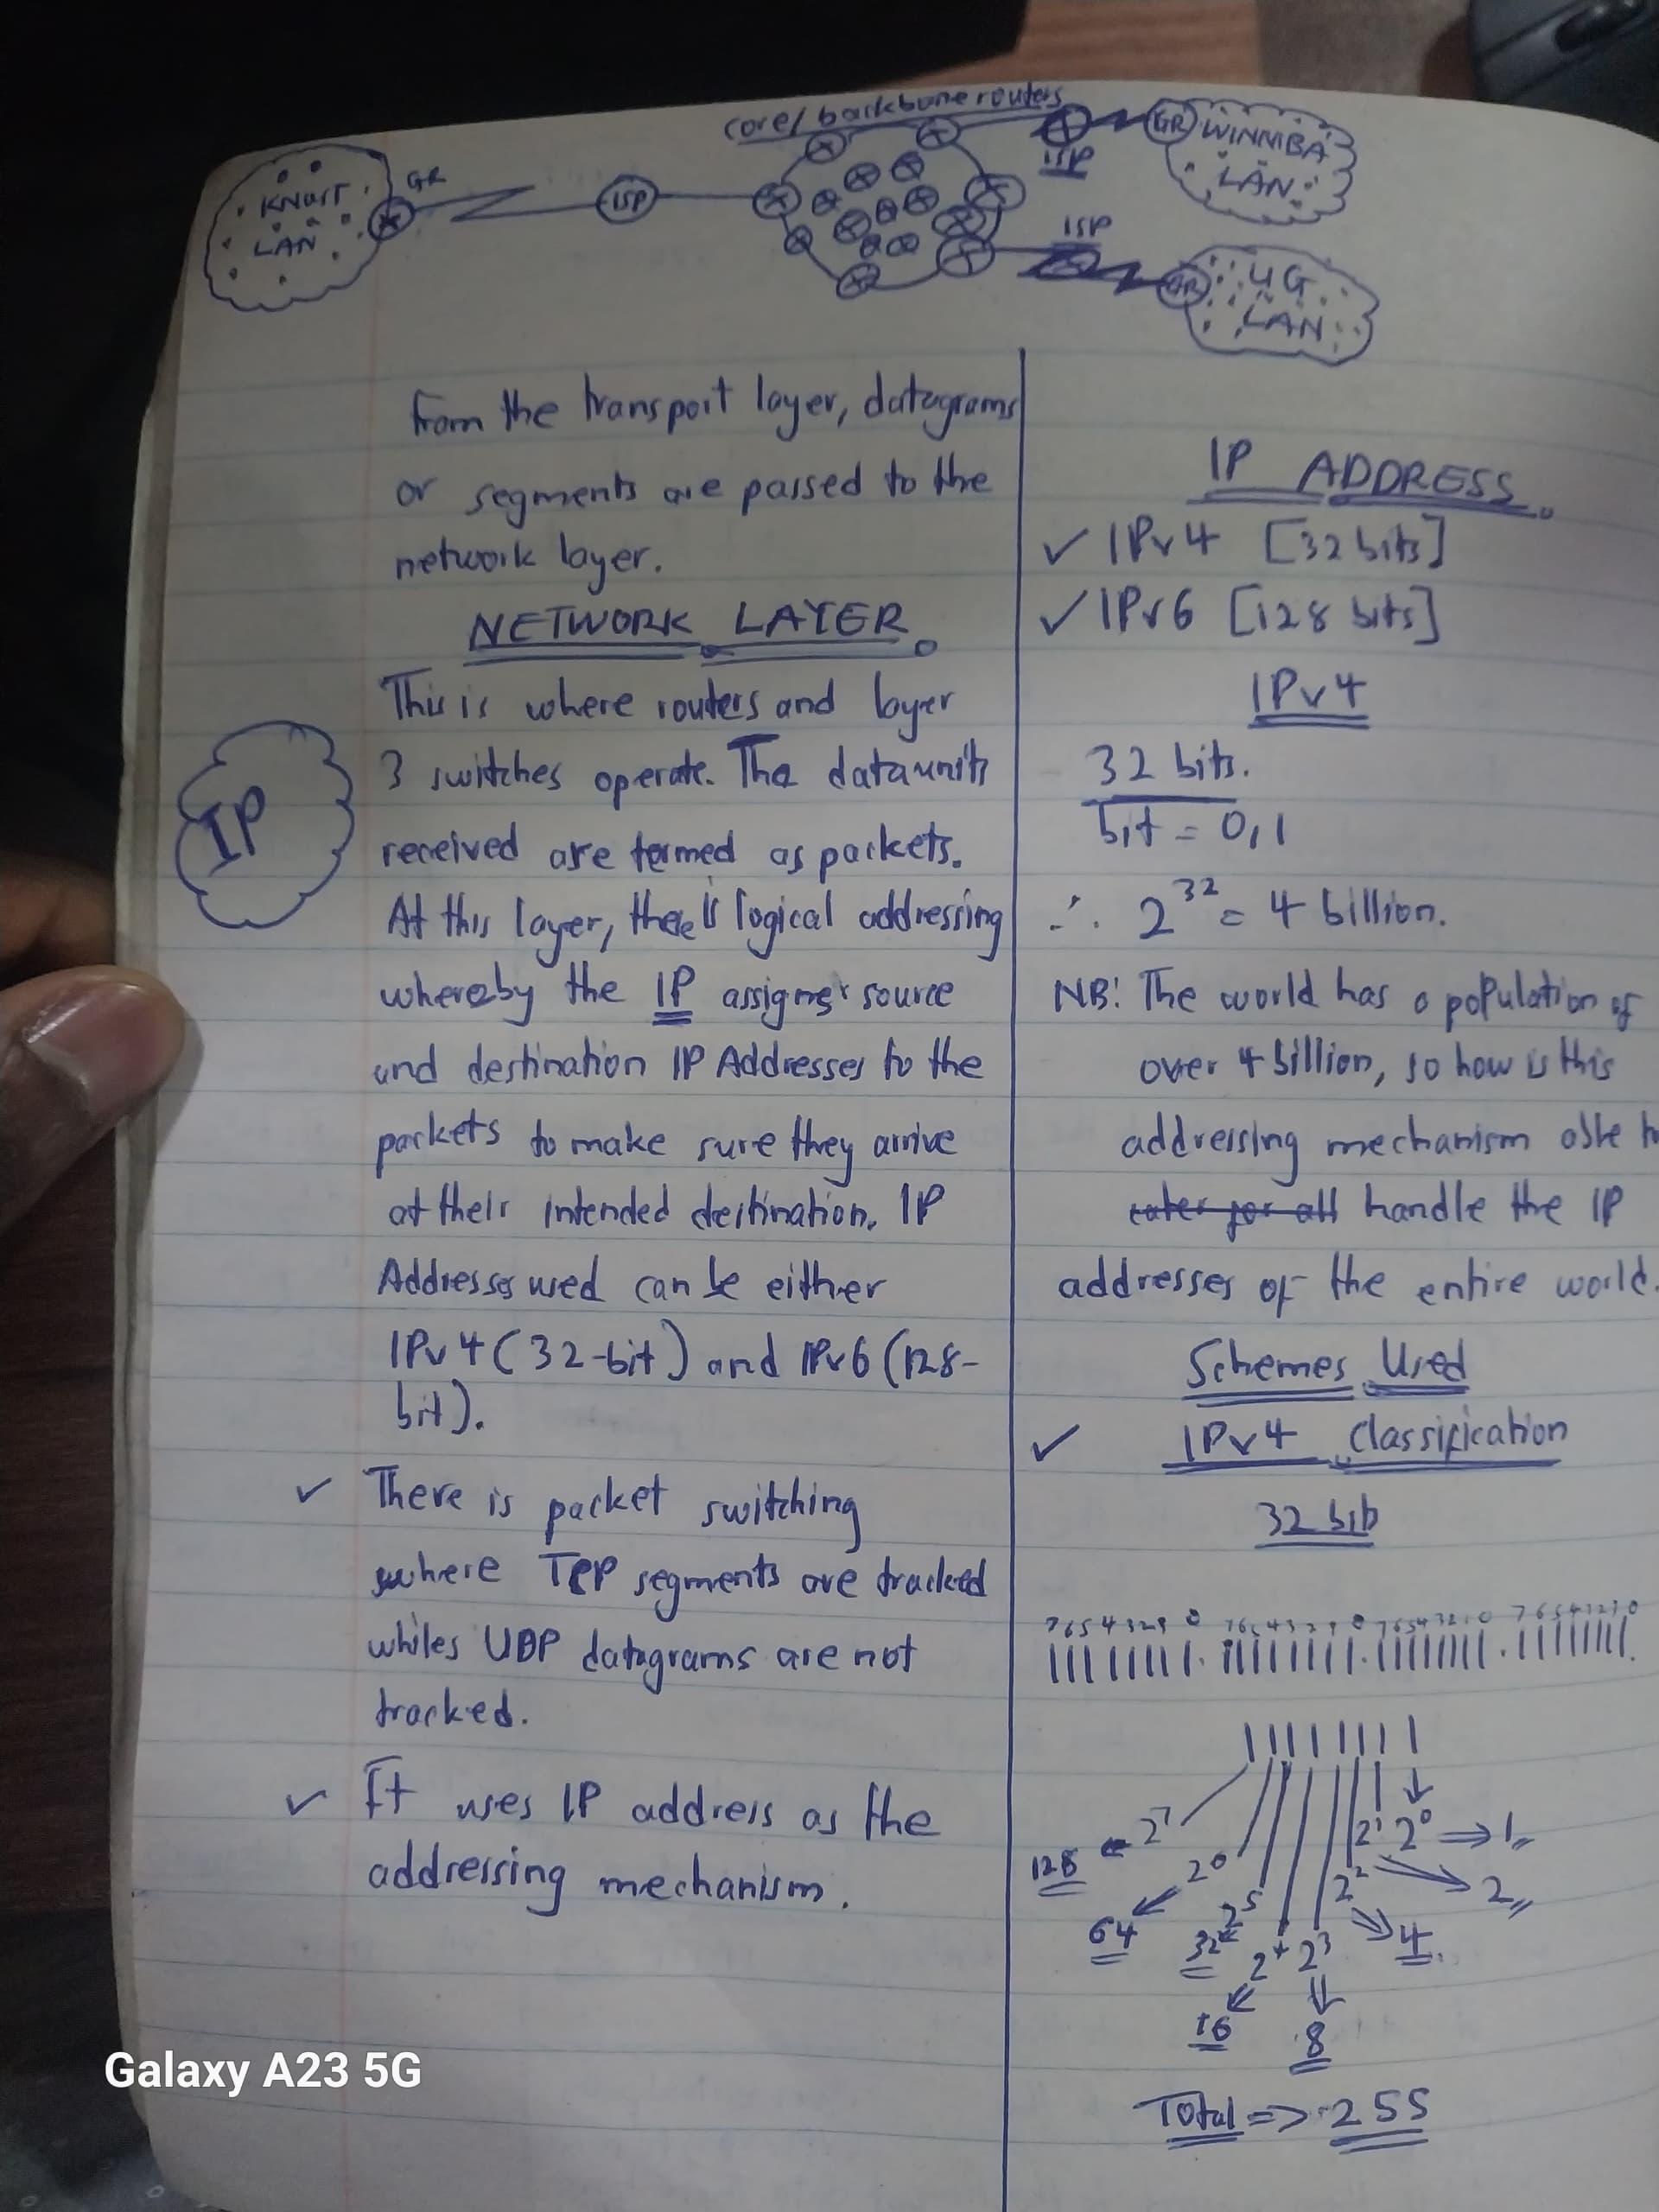 core/backbone routers
KNUST
LAN
GR
ISP
ISP
GR
WINNEBA
LAN
ISP
GR
UG
LAN
from the transport layer, datagrams
or segments are passed to the
network layer.
NETWORK LAYER
This is where routers and layer
3 switches operate. The dataunits
received are termed as packets.
IP
At this layer, there is logical addressing
whereby the IP assigner source
and destination IP Addresses to the
packets to make sure they arrive
at their intended destination. IP
Addresses used can be either
IPv4 (32-bit) and IPv6 (128-
bit).
✓ There is packet switching
where TCP segments are tracked
whiles UDP datagrams are not
tracked.
✓ It uses IP address as the
addressing mechanism.
IP ADDRESS
✓ IPv4 [32 bits]
✓ IPv6 [128 bits]
IPv4
32 bits.
bit = 0,1
∴ 2^32 = 4 billion.
NB: The world has a population of
over 4 billion, so how is this
addressing mechanism able to
cater for all handle the IP
addresses of the entire world.
Schemes Used
✓ IPv4 Classification
32 bits
7 6 5 4 3 2 1 0 7 6 5 4 3 2 1 0 7 6 5 4 3 2 1 0 7 6 5 4 3 2 1 0
11111111.11111111.11111111.11111111.
11111111
2^1 2^0 ⇒ 1
128 ← 2^7
2^6 2^2 2
64 32 2^5 2^4 2^3 4.
16 8
Total => 255
Galaxy A23 5G